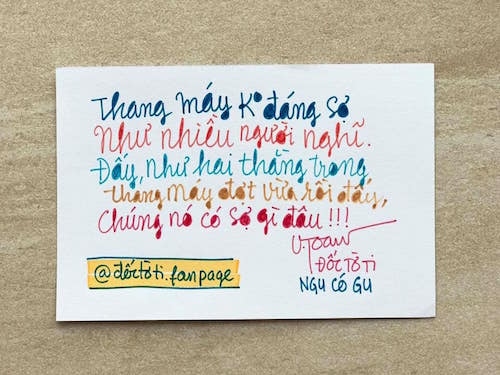 Thang máy K° đáng sợ
Như nhiều người nghĩ.
Đấy, như hai thằng trong
thang máy đợt vừa rồi đấy,
Chúng nó có sợ gì đâu !!!
V.Toàn
ĐỐC TỜ TI
NGU CÓ GU
@đốctờti.fanpage